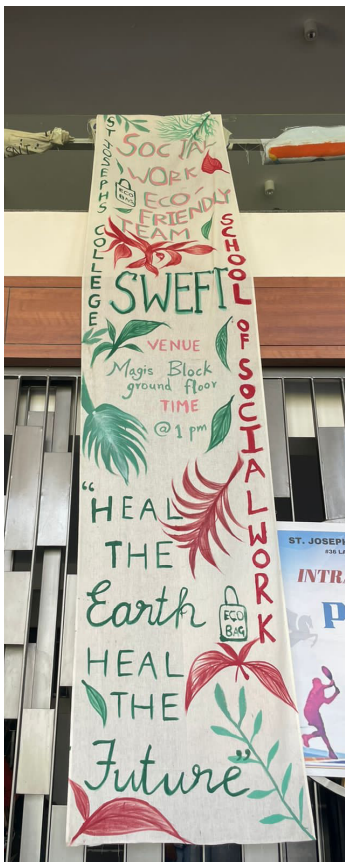 ST JOSEPHS COLLEGE
SOCIAL
WORK
ECO-
FRIENDLY
TEAM
ECO
BAG
SWEFT
SCHOOL OF SOCIAL WORK
VENUE
Magis Block
ground floor
TIME
@ 1 pm
"HEAL
THE
Earth
ECO
BAG
HEAL
THE
Future"
ST. JOSEPH
#36 LA
INTRA
P